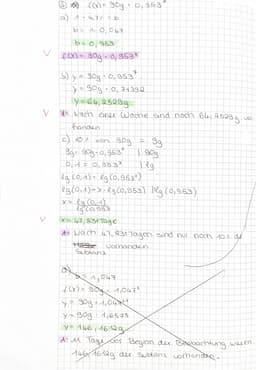 f(x)= 90g · 0,953ˣ
a) 1 - 4,7% = b
b = 1 - 0,047
b = 0,953
f(x)= 90g · 0,953ˣ
b) y = 90g · 0,953⁷
y = 90g · 0,71392
y = 64,2529g
A: Nach einer Woche sind noch 64,2529g vorhanden
c) 10% von 90g = 9g
9g = 90g · 0,953ˣ | 90g
0,1 = 0,953ˣ | lg
lg(0,1) = lg(0,953ˣ)
lg(0,1) = x · lg(0,953) | lg(0,953)
x = lg(0,1)
lg(0,953)
x = 47,831 Tage
A: Nach 47,831 Tagen sind nur noch 10% der
Substanz vorhanden
d)
b = 1,047
f(x) = 90g · 1,047ˣ
y = 90g · 1,047¹¹
y = 90g · 1,6573
y = 146,1612g
A: 11 Tage vor Beginn der Beobachtung waren
146,1612g der Substanz vorhanden.